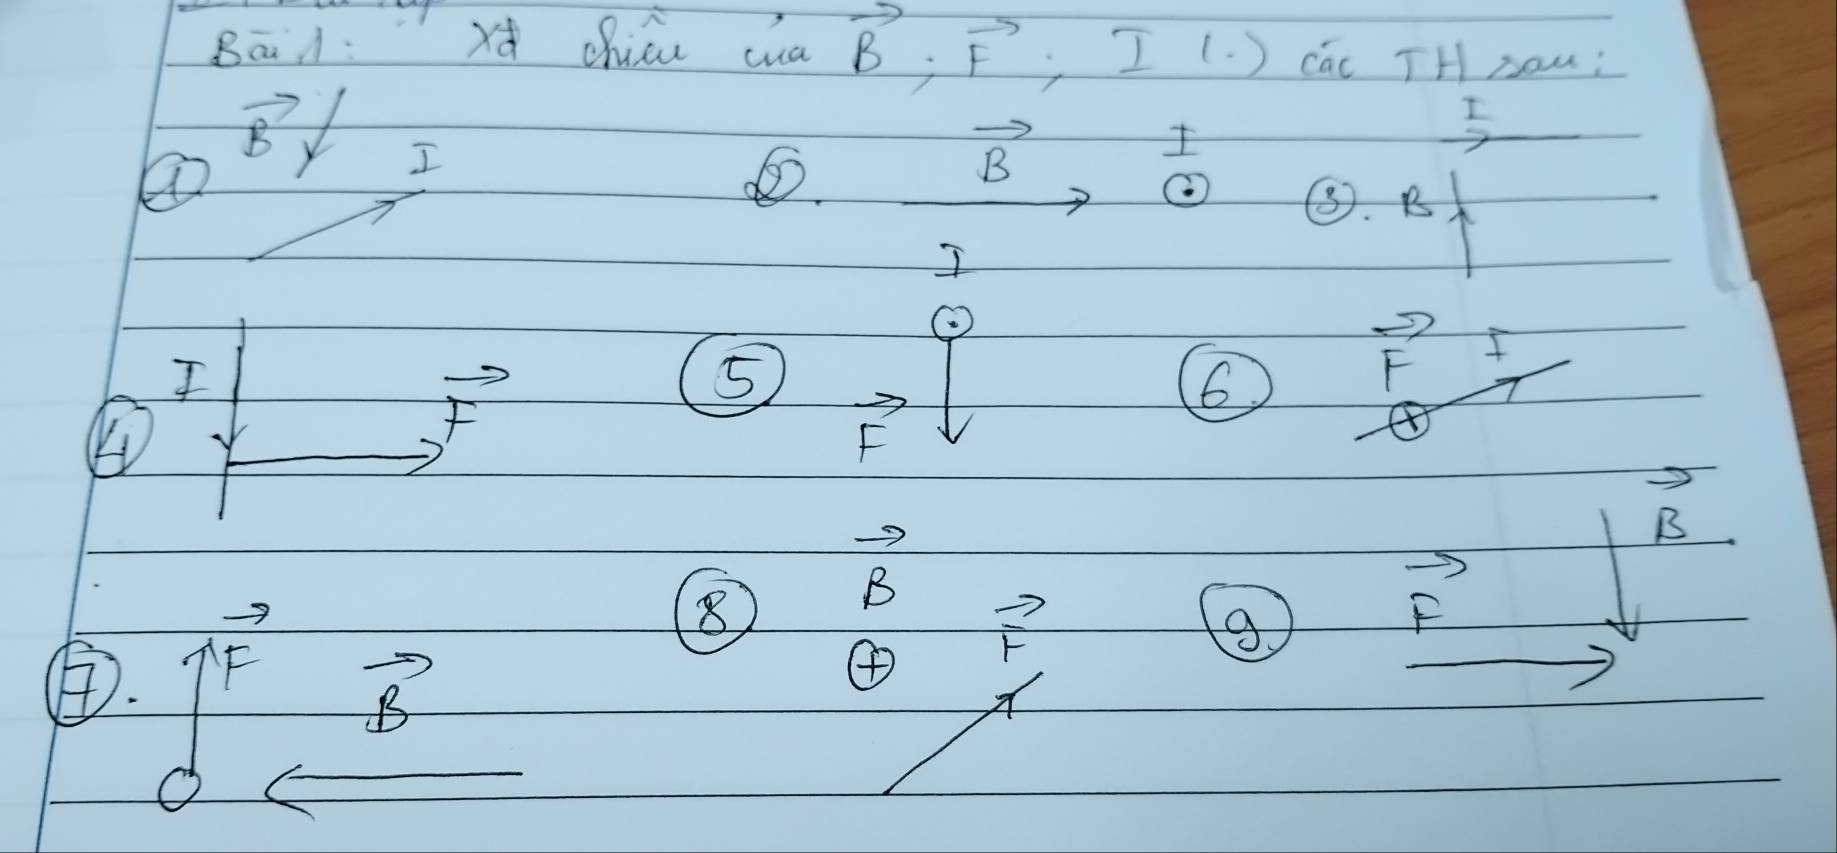 Bài 1: Xđ chiều của B ; F ; I (.) các TH sau:
① B I ②. B I ③. B I
④ I F ⑤ I F ⑥. F I
⑦. F B ⑧ B F ⑨. F B